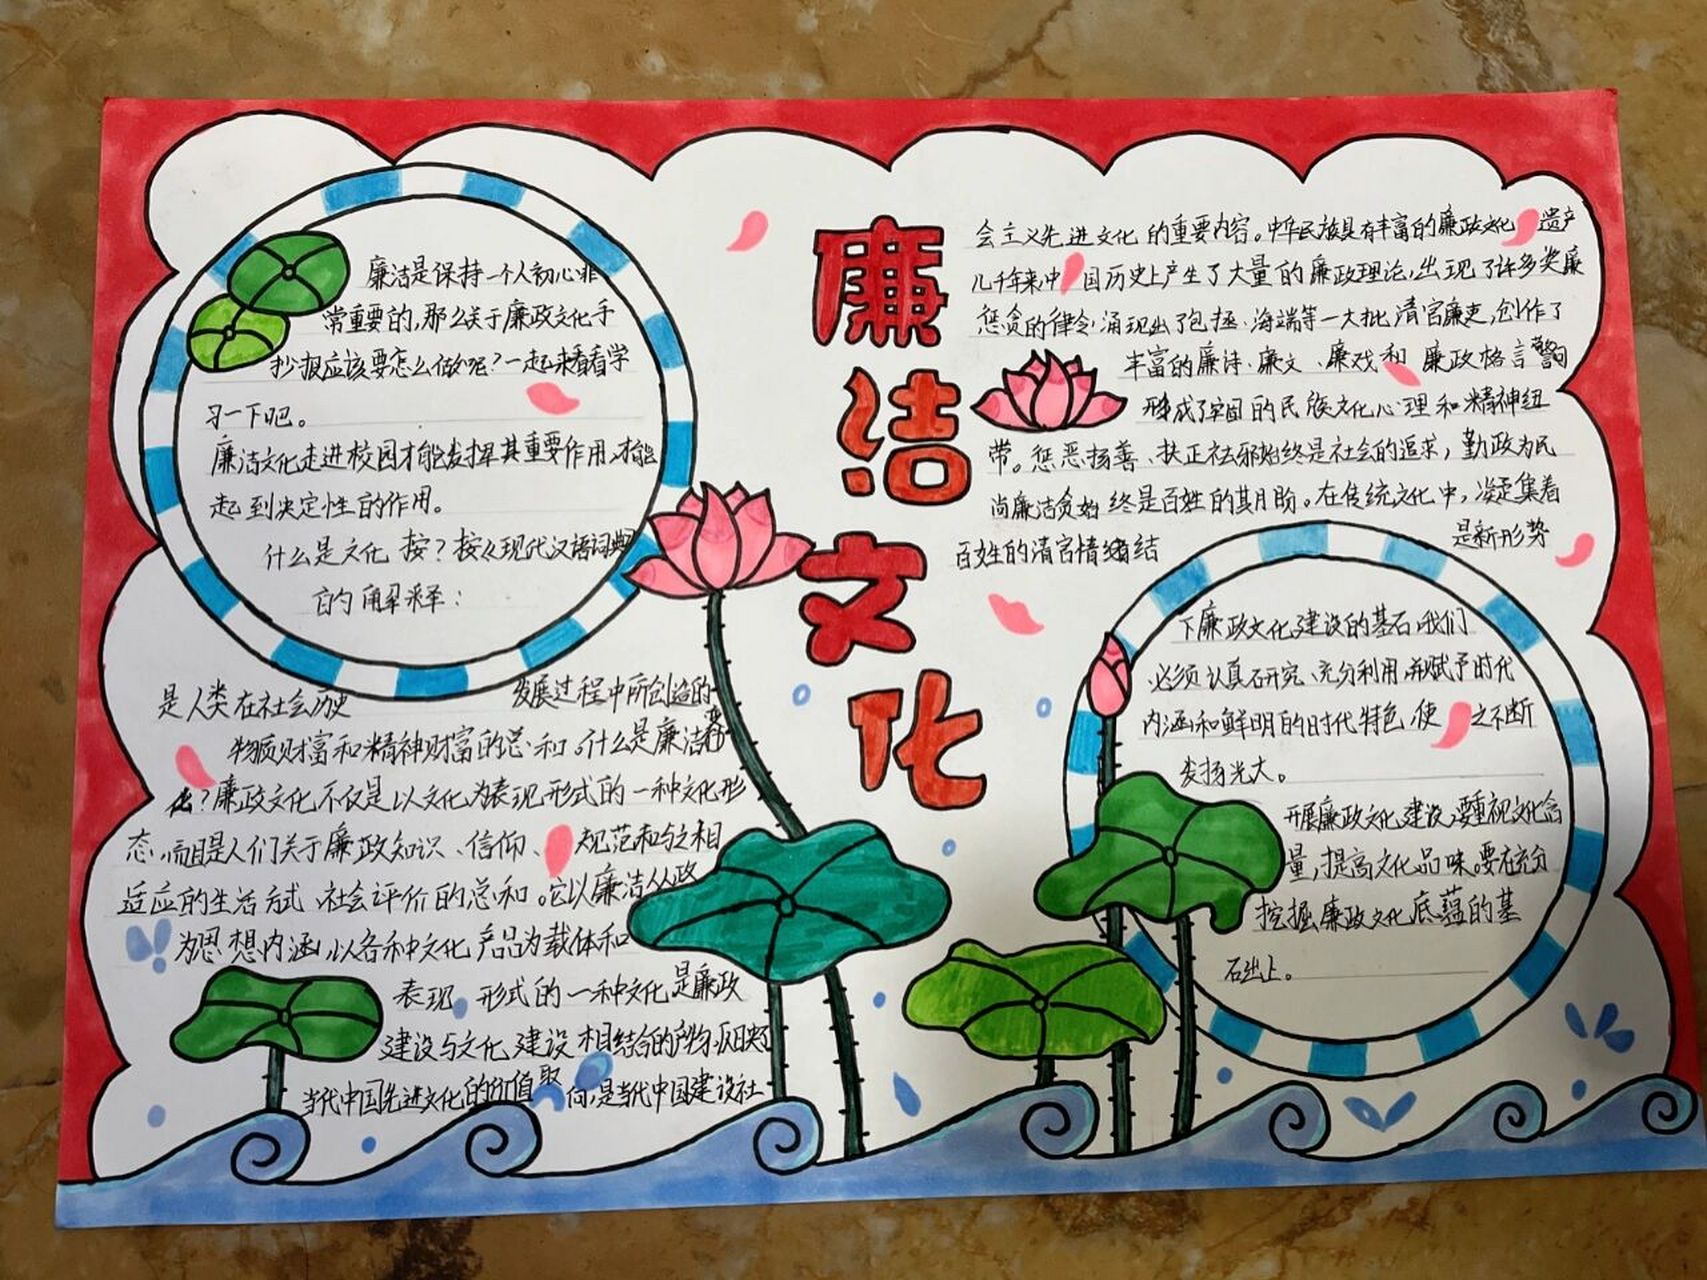 廉洁文化
廉洁是保持一个人初心非
常重要的,那么关于廉政文化手
抄报应该要怎么做呢?一起来看看学
习一下吧。
廉洁文化走进校园才能发挥其重要作用,才能
起到决定性的作用。
什么是文化 按?按《现代汉语词典
的解释:
是人类在社会历史 发展过程中所创造的
物质财富和精神财富的总和。什么是廉洁
化?廉政文化不仅是以文化为表现形式的一种文化形
态,而且是人们关于廉政知识、信仰、规范和与之相
适应的生活方式、社会评价的总和。它以廉洁从政
为思想内涵,以各种文化产品为载体和
表现 形式的一种文化是廉政
建设与文化建设相结合的产物,反映了
当代中国先进文化的价值取向,是当代中国建设社
会主义先进文化的重要内容。中华民族具有丰富的廉政文化遗产
几千年来中国历史上产生了大量的廉政理论,出现了许多奖廉
惩贪的律令,涌现出了包拯、海瑞等一大批清官廉吏,创作了
丰富的廉诗、廉文、廉戏和廉政格言警句
形成了牢固的民族文化心理和精神纽
带。惩恶扬善、扶正祛邪始终是社会的追求,勤政为民
尚廉洁贪始终是百姓的期盼。在传统文化中,凝集着
百姓的清官情绪结 是新形势
下廉政文化建设的基石,我们
必须认真研究、充分利用,并赋予时代
内涵和鲜明的时代特色,使之不断
发扬光大。
开展廉政文化建设,要重视文化含
量,提高文化品味。要在充分
挖掘廉政文化底蕴的基
石出上。